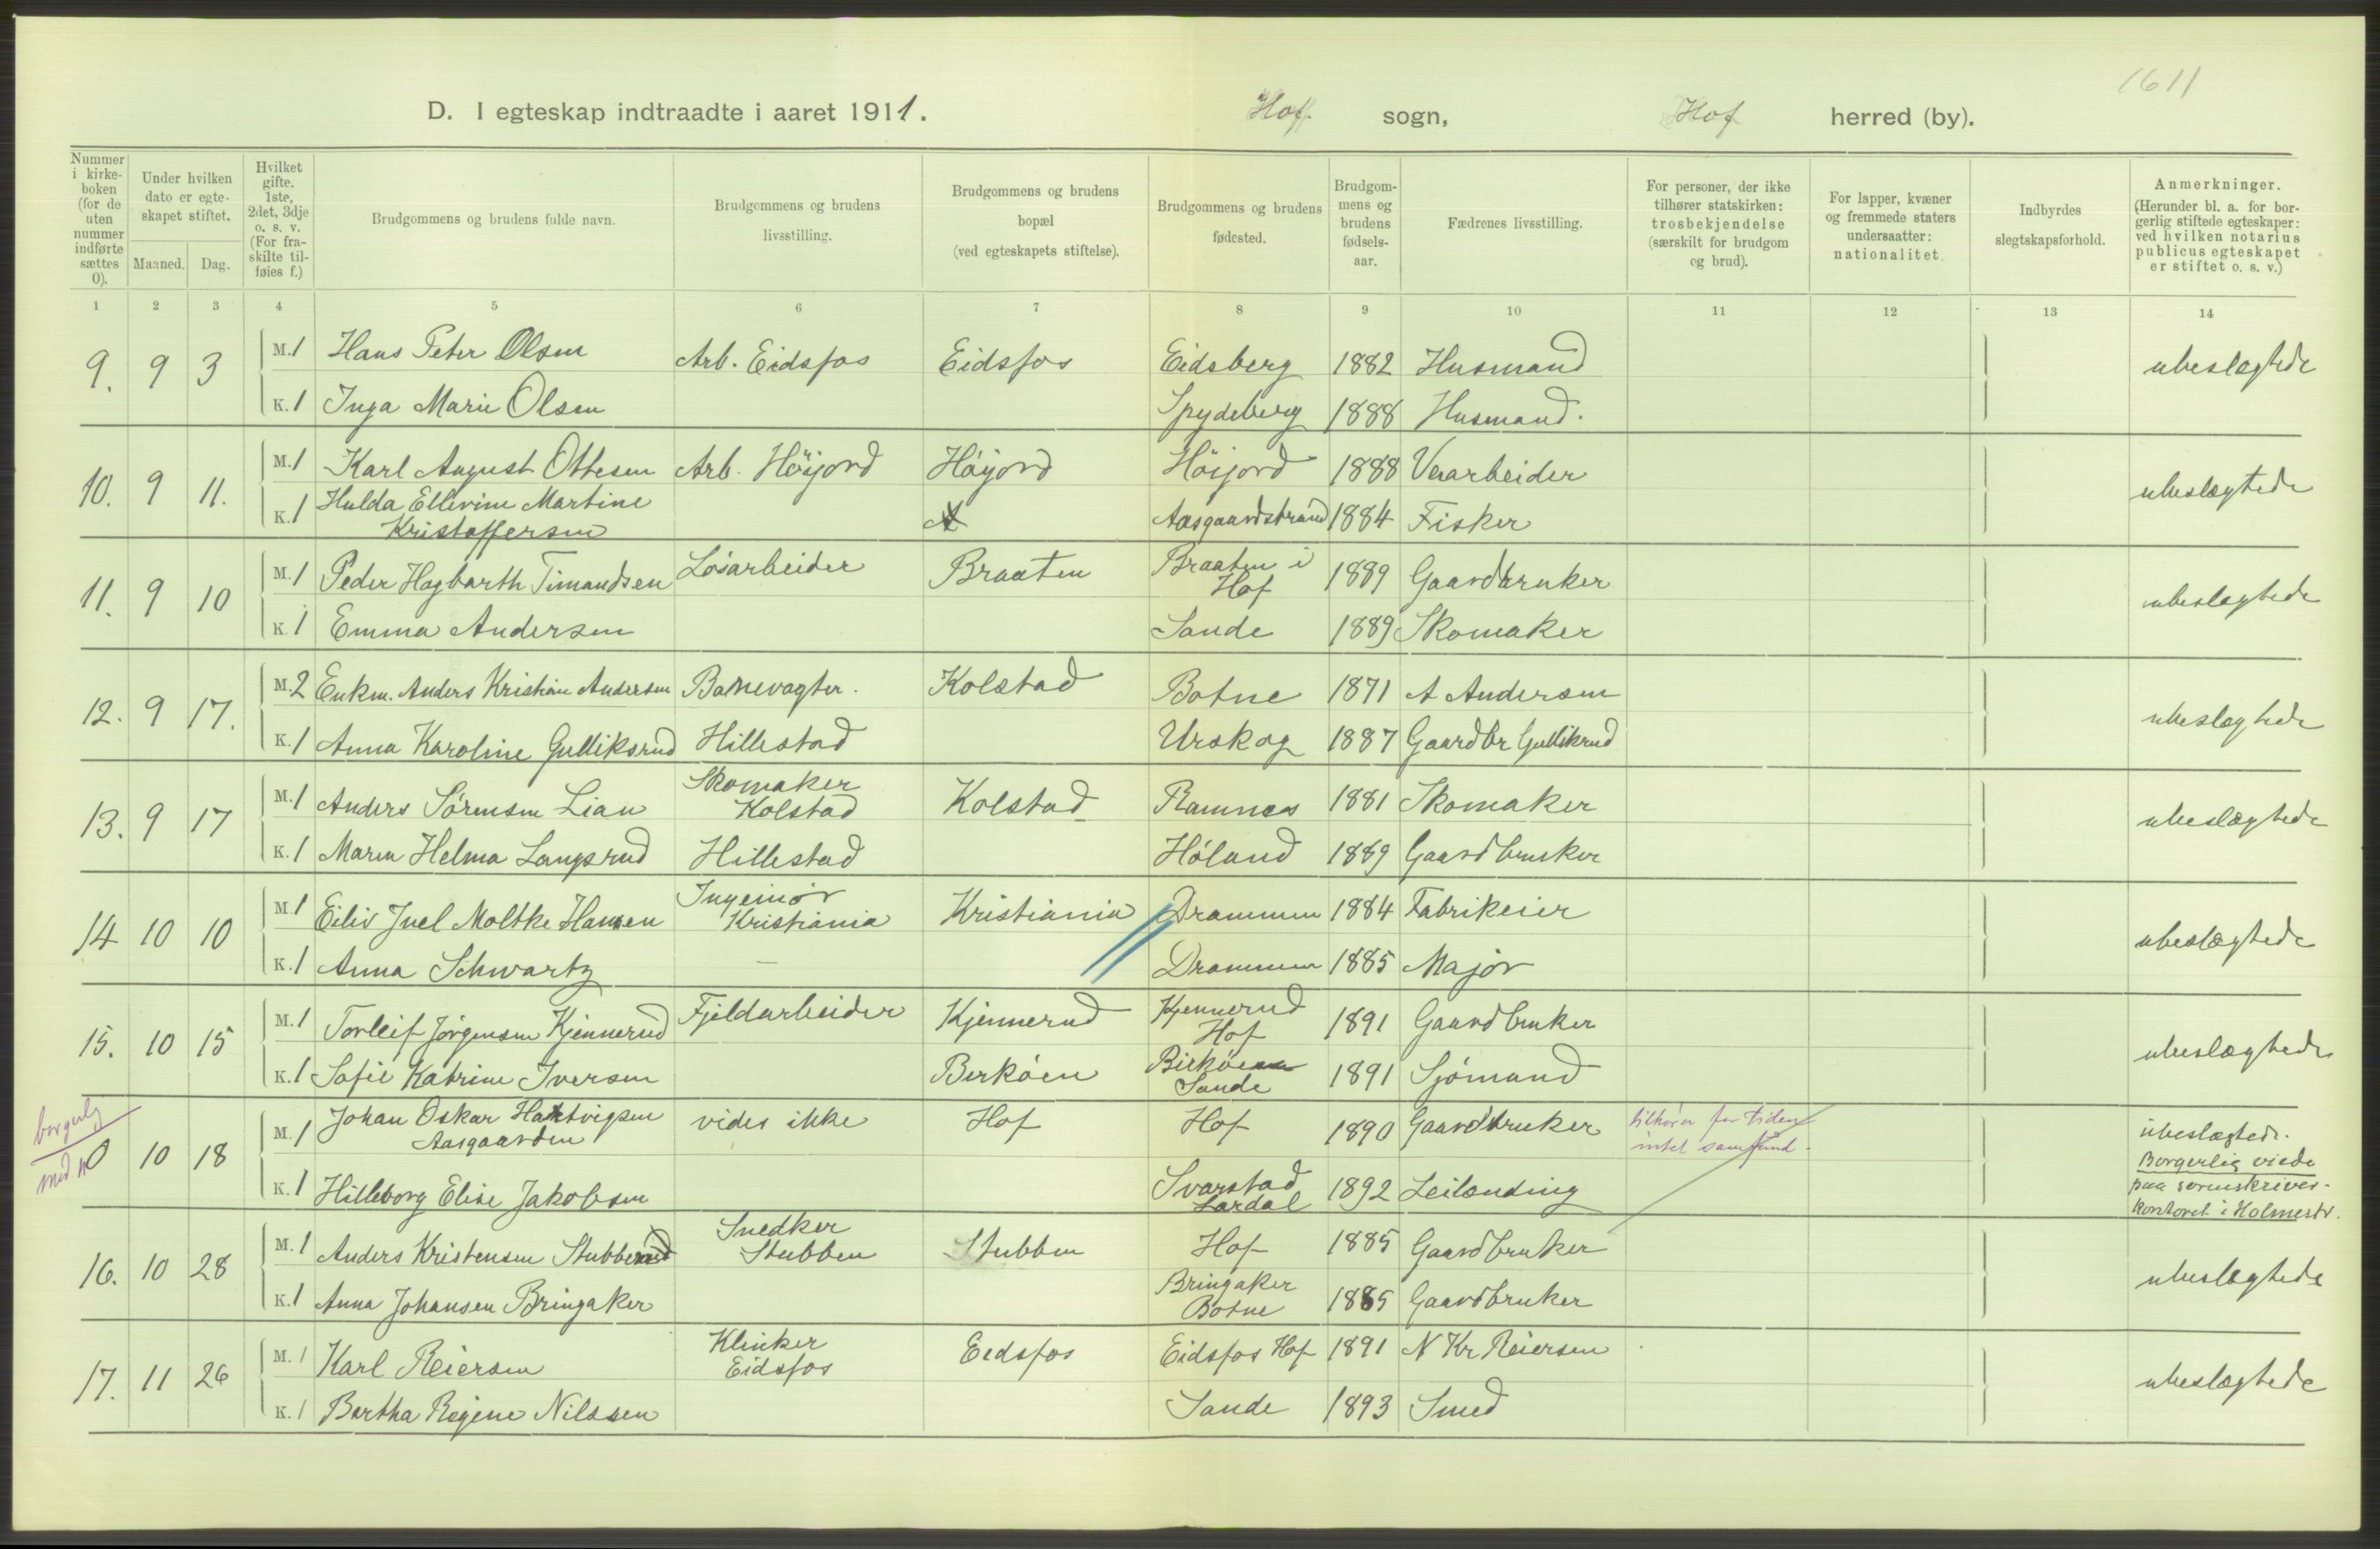 1611
D. I egteskap indtraadte i aaret 1911. Hof. sogn, Hof herred (by).
Nummer i kirke-boken (for de uten nummer indførte sættes 0).
Under hvilken dato er egte-skapet stiftet.
Maaned. Dag.
Hvilket gifte. 1ste, 2det, 3dje o. s. v. (For fra-skilte til-føies f.)
Brudgommens og brudens fulde navn.
Brudgommens og brudens livsstilling.
Brudgommens og brudens bopæl (ved egteskapets stiftelse).
Brudgommens og brudens fødested.
Brudgom-mens og brudens fødsels-aar.
Fædrenes livsstilling.
For personer, der ikke tilhører statskirken: trosbekjendelse (særskilt for brudgom og brud).
For lapper, kvæner og fremmede staters undersaatter: nationalitet.
Indbyrdes slegtskapsforhold.
Anmerkninger. (Herunder bl. a. for bor-gerlig stiftede egteskaper: ved hvilken notarius publicus egteskapet er stiftet o. s. v.)
1 2 3 4 5 6 7 8 9 10 11 12 13 14
9. 9 3 M. 1 Hans Peter Olsen Arb. Eidsfos Eidsfos Eidsberg 1882 Husmand ubeslægtede
K. 1 Inga Marie Olsen Spydeberg 1888 Husmand.
10. 9 11. M. 1 Karl August Ottesen Arb. Höijord Höijord Höijord 1888 Veiarbeider ubeslægtede
K. 1 Hulda Ellevine Martine
Kristoffersen Aasgaardstrand 1884 Fisker
11. 9 10 M. 1 Peder Hagbarth Timandsen Løsarbeider Braaten Braaten i
Hof 1889 Gaardbruker ubeslægtede
K. 1 Emma Andersen Sande 1889 Skomaker
12. 9 17. M. 2 Enkm. Anders Kristian Andersen Banevagter. Kolstad Botne 1871 A Andersen ubeslægtede
K. 1 Anna Karoline Gulliksrud Hillestad Urskog 1887 Gaardbr Gullikrud
13. 9 17 M. 1 Anders Sörensen Lian Skomaker
Kolstad Kolstad Ramnes 1881 Skomaker ubeslægtede
K. 1 Maren Helma Langsrud Hillestad Höland 1889 Gaardbruker
14 10 10 M. 1 Eiliv Juel Moltke Hansen Ingeniör
Kristiania Kristiania Drammen 1884 Fabrikeier ubeslægtede
K. 1 Anna Schwartz — Drammen 1885 Major
15. 10 15 M. 1 Torleif Jörgensen Kjennerud Fjeldarbeider Kjennerud Kjennerud
Hof 1891 Gaardbruker ubeslægtede
K. 1 Sofie Katrine Iversen Berköen Birköen
Sande 1891 Sjömand
borgerlig
0 10 18 M. 1 Johan Oskar Hartvigsen
Aasgaarden vides ikke Hof Hof 1890 Gaardbruker tilhører for tiden
intet samfund. ubeslægtede.
Borgerlig viede
paa sorenskriver-
kontoret i Holmestr.
K. 1 Hilleborg Elise Jakobsen Svarstad
Lardal 1892 Leilænding
16. 10 28 M. 1 Anders Kristensen Stubberud Snedker
Stubben Stubben Hof 1885 Gaardbruker ubeslægtede
K. 1 Anna Johansen Bringaker Bringaker
Botne 1885 Gaardbruker
17. 11 26 M. 1 Karl Reiersen Klinker
Eidsfos Eidsfos Eidsfos Hof 1891 N Kr Reiersen ubeslægtede
K. 1 Bertha Regine Nilssen Sande 1893 Smed